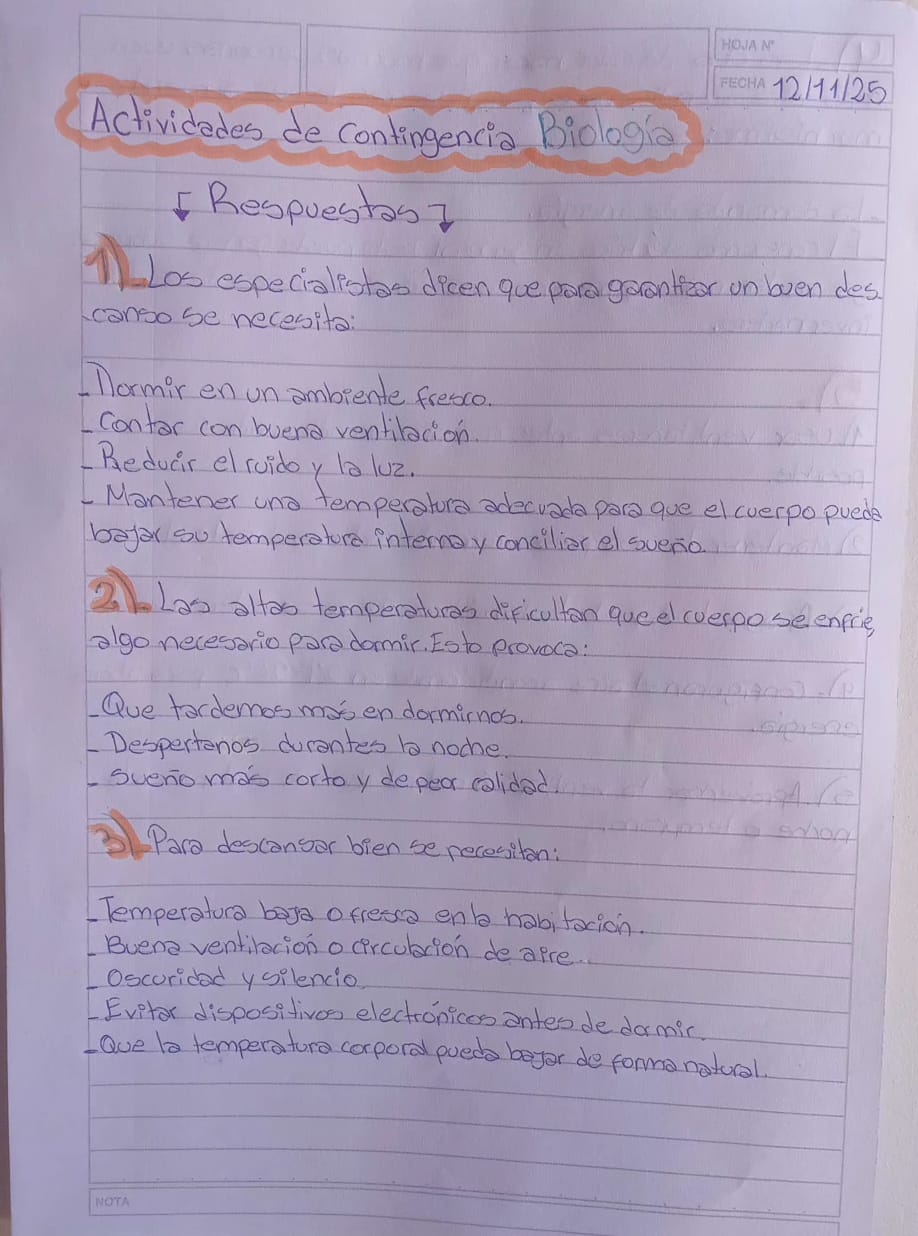 HOJA N°
FECHA 12/11/25
Actividades de contingencia Biología
Respuestas
1) Los especialistas dicen que para garantizar un buen des
canso se necesita:
- Dormir en un ambiente fresco.
- Contar con buena ventilación.
- Reducir el ruido y la luz.
- Mantener una temperatura adecuada para que el cuerpo puede
bajar su temperatura interna y conciliar el sueño.
2) Las altas temperaturas dificultan que el cuerpo se enfríe,
algo necesario para dormir. Esto provoca:
- Que tardemos más en dormirnos.
- Despertanos durantes la noche.
- Sueño más corto y de peor calidad.
3) Para descansar bien se necesitan:
- Temperatura baja o fresca en la habitación.
- Buena ventilación o circulación de aire.
- Oscuridad y silencio.
- Evitar dispositivos electrónicos antes de dormir.
- Que la temperatura corporal pueda bajar de forma natural.
NOTA